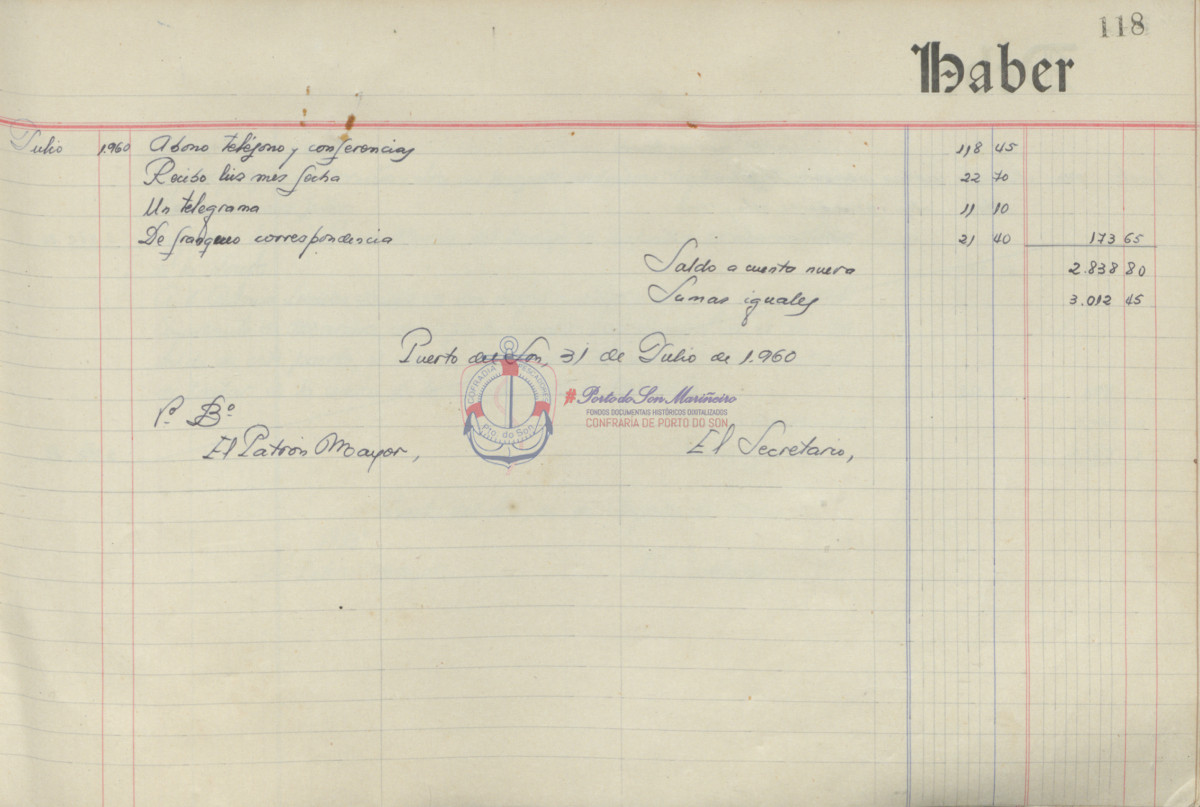 118
Haber
Julio 1.960 Abono teléfono y conferencias 118 45
Recibo luz mes fecha 22 70
Un telegrama 11 10
De franqueo correspondencia 21 40 173 65
Saldo a cuenta nueva 2.838 80
Sumas iguales 3.012 45
Puerto del Son, 31 de Julio de 1.960
COFRADIA PESCADORES
Pto. do Son
#Porto do Son Mariñeiro
FONDOS DOCUMENTAIS HISTÓRICOS DIXITALIZADOS
CONFRARÍA DE PORTO DO SON
Vº Bº
El Patrón Mayor,
El Secretario,